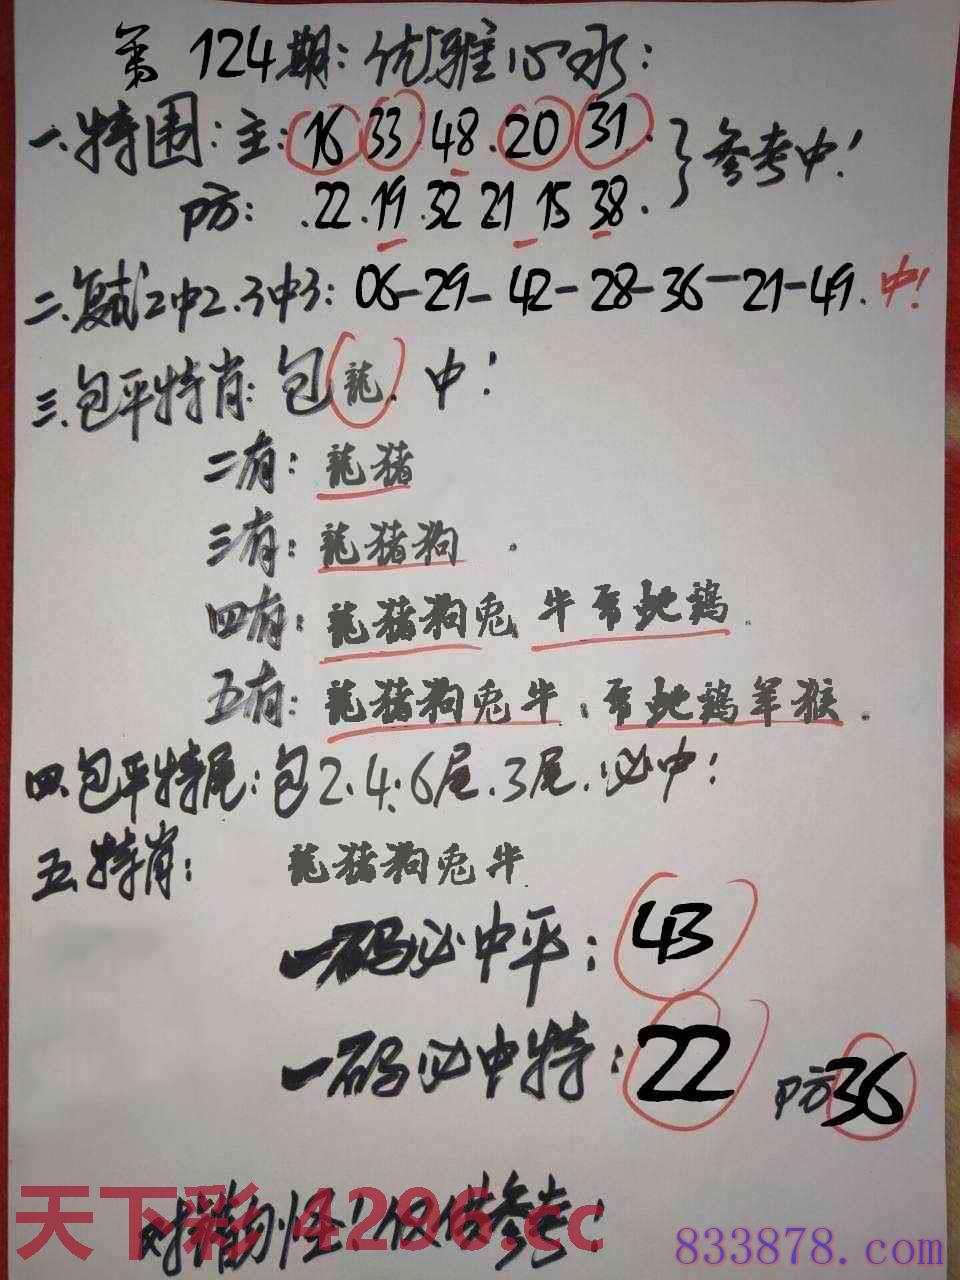 第124期：优雅心水：
一.特围：主：16 33 48.20 31.
参考中！
防：.22.19.32 21 15 38.
二.复式2中2.3中3：06-29-42-28-36-21-49.中！
三.包平特肖：包龍.中！
二有：龍猪
三有：龍猪狗.
四有：龍猪狗兎 牛 蛇鷄.
五有：龍猪狗兎牛. 蛇鷄羊猴.
四.包平特尾：包2.4.6尾.3尾.必中！
五.特肖：龍猪狗兎牛.
一码必中平：43
一码必中特：22 防36
天下彩 4296.cc
仅供参考！
833878.com